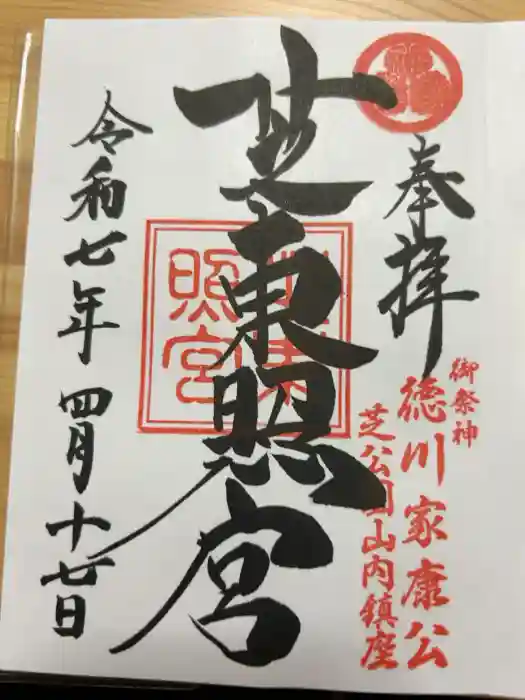 奉拝
御祭神
徳川家康公
芝公園山内鎮座
芝東照宮
芝東照宮
令和七年四月十七日